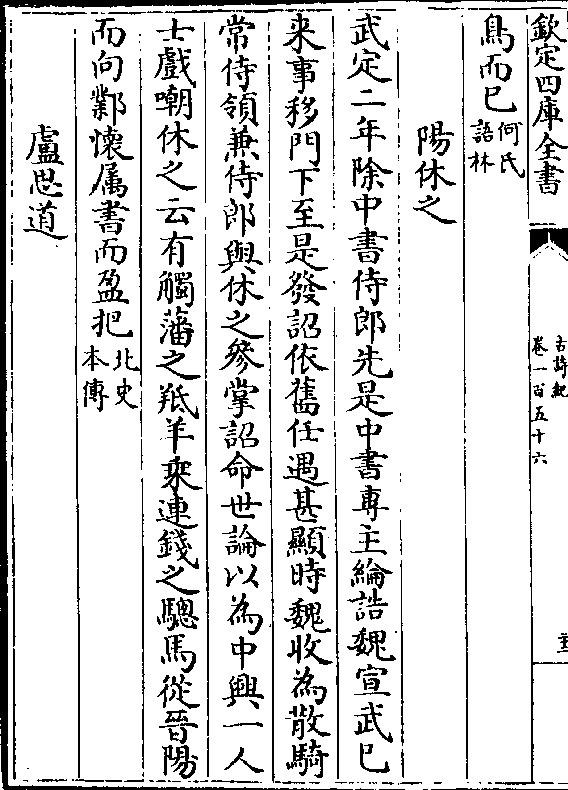 欽定四庫全書
古詩紀
卷一百五十六
鳥而已何氏語林
陽休之
武定二年除中書侍郎先是中書專主綸誥魏宣武已
来事移門下至是發詔依舊任遇甚顯時魏收為散騎
常侍領兼侍郎與休之參掌詔命世論以為中興一人
士戲嘲休之云有觸藩之羝羊乘連錢之驄馬從晉陽
而向鄴懷属書而盈把北史本傳
盧思道